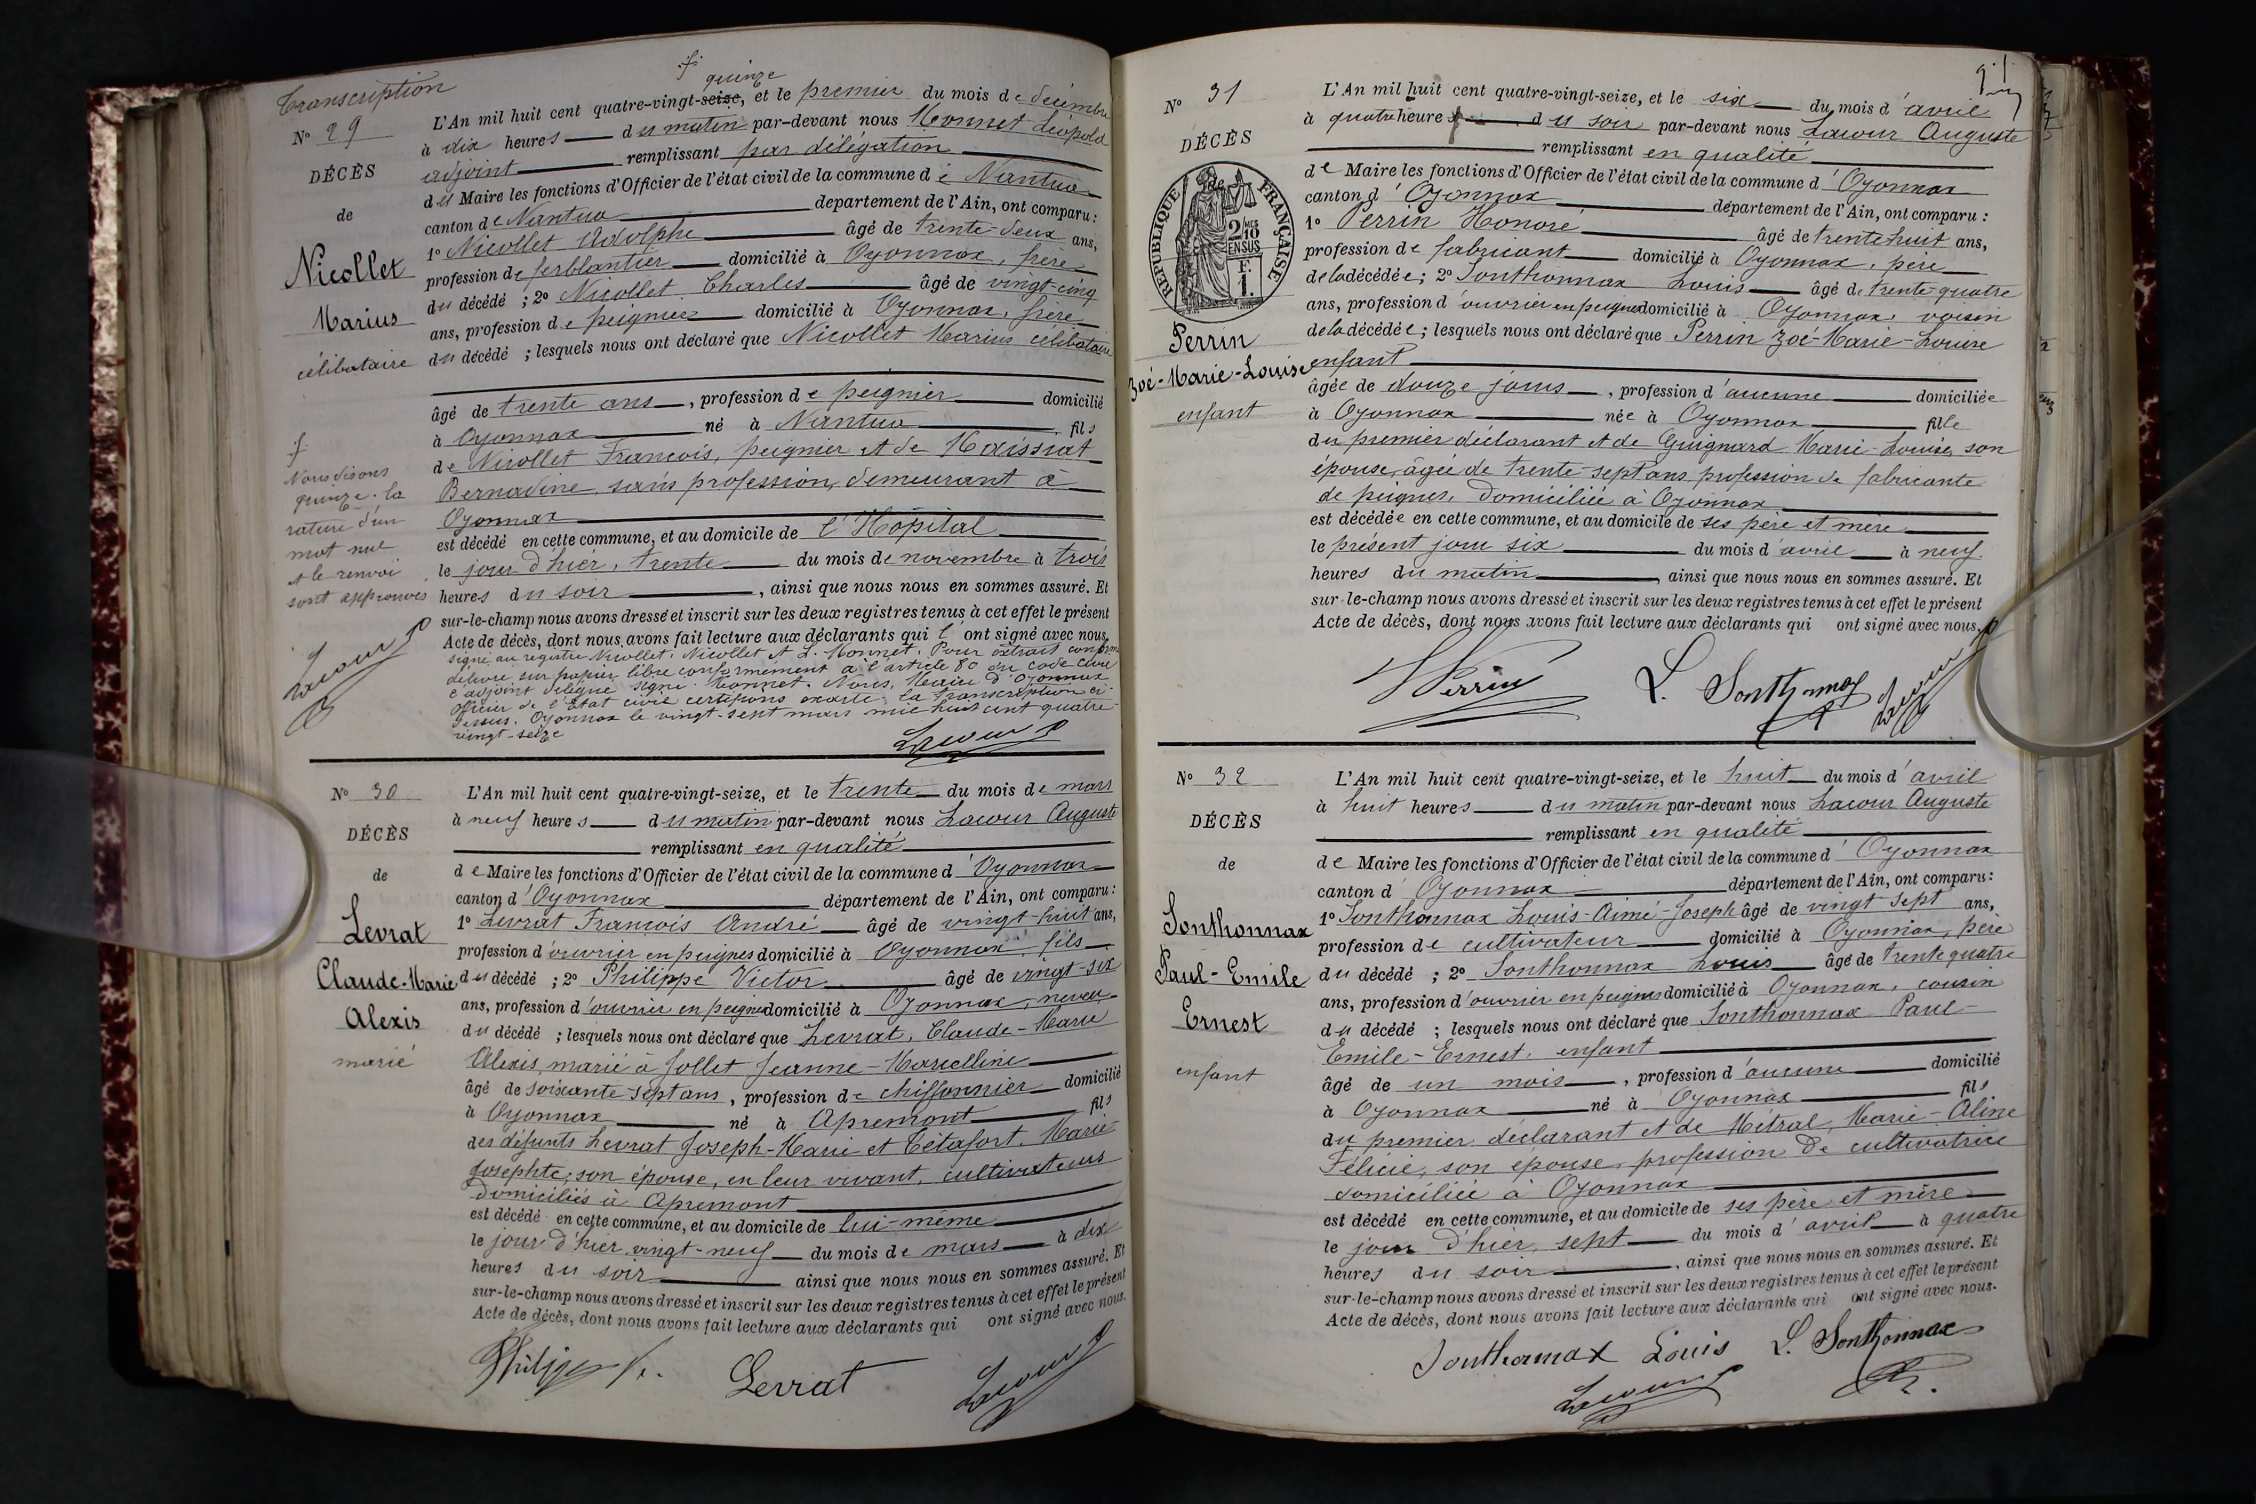 Transcription
quinze
L'An mil huit cent quatre-vingt-seize, et le premier du mois de décembre
No 29
à dix heures du matin par-devant nous Monnet Léopold
adjoint remplissant par délégation
DÉCÈS
du Maire les fonctions d'Officier de l'état civil de la commune de Nantua
de
canton de Nantua département de l'Ain, ont comparu :
1o Nicollet Adolphe âgé de trente-deux ans,
Nicollet
profession de ferblantier domicilié à Oyonnax, frère
du décédé ; 2o Nicollet Charles âgé de vingt-cinq
Marius
ans, profession de peignier domicilié à Oyonnax, frère
célibataire
du décédé ; lesquels nous ont déclaré que Nicollet Marius célibataire
âgé de trente ans, profession de peignier domicilié
à Oyonnax né à Nantua fils
de Nicollet François, peignier et de Maissiat
Bernadine, sans profession, demeurant à
Oyonnax
est décédé en cette commune, et au domicile de l'Hôpital
le jour d'hier, trente du mois de novembre à trois
heures du soir, ainsi que nous nous en sommes assuré. Et
sur-le-champ nous avons dressé et inscrit sur les deux registres tenus à cet effet le présent
Acte de décès, dont nous avons fait lecture aux déclarants qui l'ont signé avec nous.
signé au registre Nicollet, Nicollet et L. Monnet. Pour extrait conforme
délivré sur papier libre conformément à l'article 80 du code civil
l'adjoint délégué signé Monnet. Nous, Maire d'Oyonnax
officier de l'Etat civil certifions exacte la transcription ci-
dessus. Oyonnax le vingt-sept mars mil huit cent quatre-
vingt-seize
Lacour
Nous disons
quinze. la
rature d'un
mot nul
et le renvoi
sont approuvés
Lacour
No 30
L'An mil huit cent quatre-vingt-seize, et le trente du mois de mars
à neuf heures du matin par-devant nous Lacour Auguste
DÉCÈS
remplissant en qualité
de
de Maire les fonctions d'Officier de l'état civil de la commune d'Oyonnax
canton d'Oyonnax département de l'Ain, ont comparu :
Levrat
1o Levrat François André âgé de vingt-huit ans,
profession d'ouvrier en peignes domicilié à Oyonnax, fils
Claude-Marie
du décédé ; 2o Philippe Victor âgé de vingt-six
Alexis
ans, profession d'ouvrier en peignes domicilié à Oyonnax, neveu
du décédé ; lesquels nous ont déclaré que Levrat, Claude-Marie
marié
Alexis, marié à Jollet Jeanne-Marcelline
âgé de soixante sept ans, profession de chiffonnier domicilié
à Oyonnax né à Apremont fils
des défunts Levrat Joseph-Marie et Tétafort, Marie
Josephte, son épouse, en leur vivant, cultivateurs
domiciliés à Apremont
est décédé en cette commune, et au domicile de lui-même
le jour d'hier vingt-neuf du mois de mars à dix
heures du soir ainsi que nous nous en sommes assuré. Et
sur-le-champ nous avons dressé et inscrit sur les deux registres tenus à cet effet le présent
Acte de décès, dont nous avons fait lecture aux déclarants qui ont signé avec nous.
Levrat Lacour
No 31
L'An mil huit cent quatre-vingt-seize, et le six du mois d'avril
à quatre heures du soir par-devant nous Lacour Auguste
DÉCÈS
remplissant en qualité
de
de Maire les fonctions d'Officier de l'état civil de la commune d'Oyonnax
RÉPUBLIQUE FRANÇAISE
2 MES
10
EN SUS
F.
1.
canton d'Oyonnax département de l'Ain, ont comparu :
1o Perrin Honoré âgé de trente huit ans,
profession de fabricant domicilié à Oyonnax, père
de la décédée ; 2o Sonthonnax Louis âgé de trente-quatre
ans, profession d'ouvrier en peignes domicilié à Oyonnax, voisin
de la décédée ; lesquels nous ont déclaré que Perrin Zoé-Marie-Louise
Perrin
enfant
Zoé-Marie-Louise
âgée de douze jours, profession d'aucune domiciliée
enfant
à Oyonnax née à Oyonnax fille
du premier déclarant et de Guignard Marie-Louise, son
épouse, âgée de trente-sept ans profession de fabricante
de peignes, domiciliée à Oyonnax
est décédée en cette commune, et au domicile de ses père et mère
le présent jour six du mois d'avril à neuf
heures du matin, ainsi que nous nous en sommes assuré. Et
sur-le-champ nous avons dressé et inscrit sur les deux registres tenus à cet effet le présent
Acte de décès, dont nous avons fait lecture aux déclarants qui ont signé avec nous.
Perrin L. Sonthonnax Lacour
No 32
L'An mil huit cent quatre-vingt-seize, et le huit du mois d'avril
à huit heures du matin par-devant nous Lacour Auguste
DÉCÈS
remplissant en qualité
de
de Maire les fonctions d'Officier de l'état civil de la commune d'Oyonnax
canton d'Oyonnax département de l'Ain, ont comparu :
Sonthonnax
1o Sonthonnax Louis-Aimé-Joseph âgé de vingt sept ans,
profession de cultivateur domicilié à Oyonnax, père
Paul-Emile
du décédé ; 2o Sonthonnax Louis âgé de trente quatre
ans, profession d'ouvrier en peignes domicilié à Oyonnax, cousin
Ernest
du décédé ; lesquels nous ont déclaré que Sonthonnax Paul-
Emile-Ernest, enfant
enfant
âgé de un mois, profession d'aucune domicilié
à Oyonnax né à Oyonnax fils
du premier déclarant et de Métral, Marie-Aline
Félicie, son épouse, profession de cultivatrice
domiciliée à Oyonnax
est décédé en cette commune, et au domicile de ses père et mère
le jour d'hier, sept du mois d'avril à quatre
heures du soir, ainsi que nous nous en sommes assuré. Et
sur-le-champ nous avons dressé et inscrit sur les deux registres tenus à cet effet le présent
Acte de décès, dont nous avons fait lecture aux déclarants qui ont signé avec nous.
Sonthonnax Louis L. Sonthonnax
Lacour